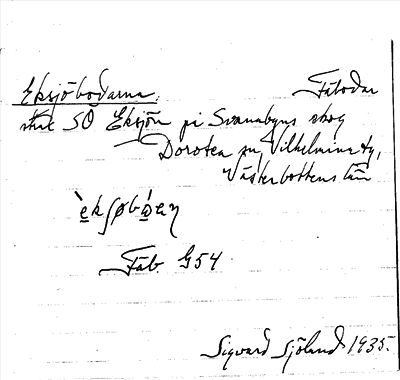 Eksjöbodarna. Fäbodar
strax SÖ Eksjön på Svanabyns skog
Dorotea sn, Vilhelmina tg,
Västerbottens län
Fäb. G54
Sigvard Sjölund 1935.